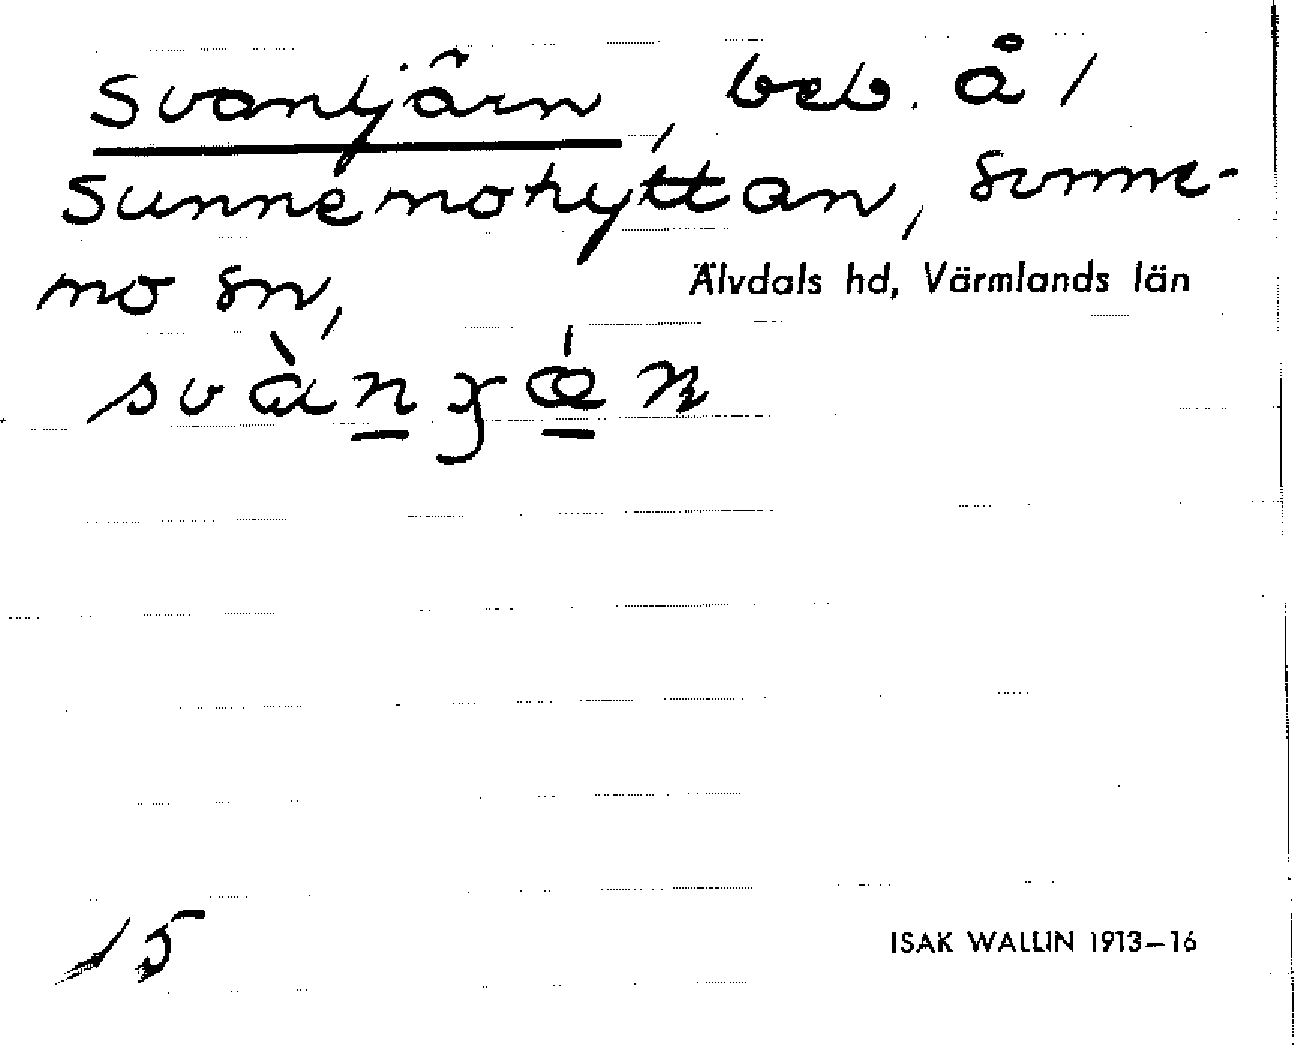 Svantjärn, beb. å /
Sunnemohyttan, Sunne-
mo sn,
Älvdals hd, Värmlands län
15
ISAK WALLIN 1913–16